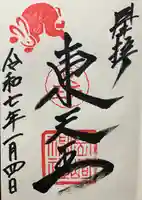 奉拝
東天王
令和七年一月四日